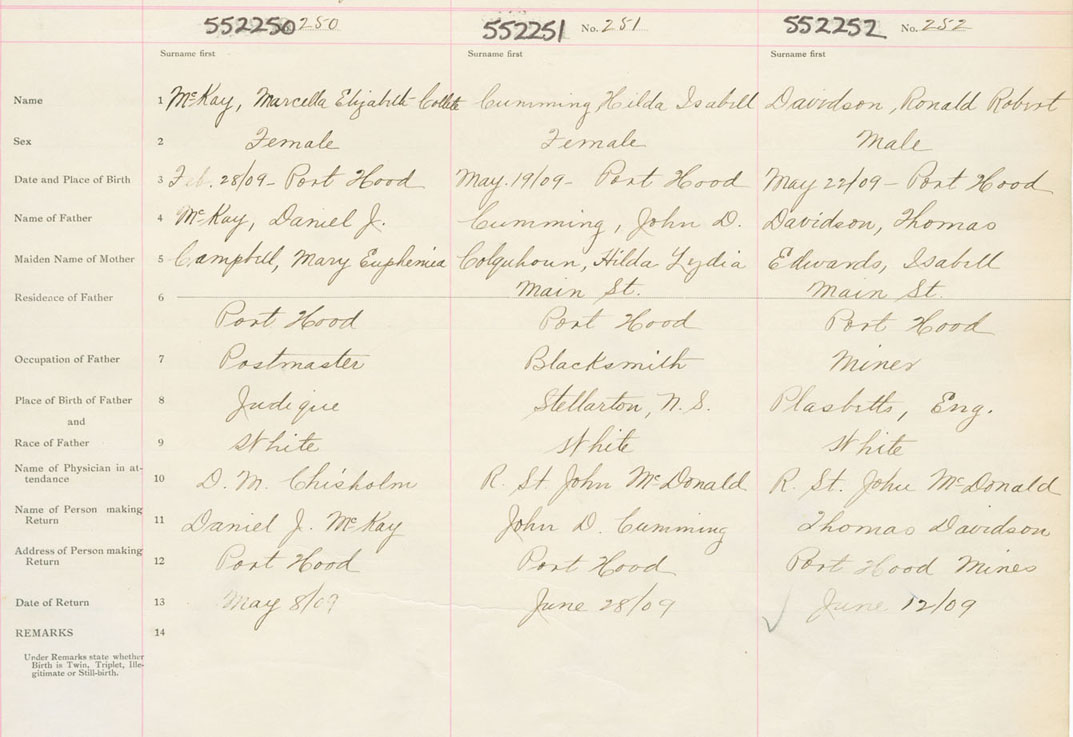 552250 250 552251 No. 251 552252 No. 252
Surname first Surname first Surname first
Name 1 McKay, Marcella Elizabeth Collete Cumming, Hilda Isabell Davidson, Ronald Robert
Sex 2 Female Female Male
Date and Place of Birth 3 Feb. 28/09- Port Hood May. 19/09- Port Hood May 22/09- Port Hood
Name of Father 4 McKay, Daniel J. Cumming, John D. Davidson, Thomas
Maiden Name of Mother 5 Campbell, Mary Euphemiea Colquhoun, Hilda Lydia Edwards, Isabell
Main St. Main St.
Residence of Father 6
Port Hood Port Hood Port Hood
Occupation of Father 7 Postmaster Blacksmith Miner
Place of Birth of Father 8 Judique Stellarton, N. S. Plasbitts, Eng.
and
Race of Father 9 White White White
Name of Physician in at-
tendance 10 D. M. Chisholm R. St John McDonald R. St. John McDonald
Name of Person making
Return 11 Daniel J. McKay John D. Cumming Thomas Davidson
Address of Person making
Return 12 Port Hood Port Hood Port Hood Mines
Date of Return 13 May 8/09 June 28/09 June 12/09
REMARKS 14
Under Remarks state whether
Birth is Twin, Triplet, Ille-
gitimate or Still-birth.